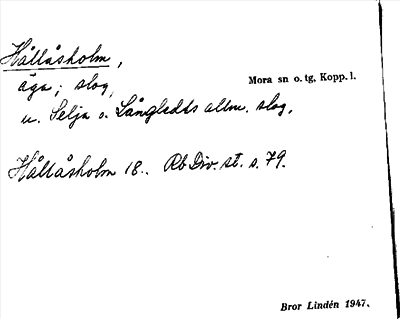 Hållåsholm,
äga; slog,
Mora sn o. tg, Kopp. l.
u. Selja o. Långledds allm. slog.
Hållåsholm 18.. Rb Div. st. s. 79.
Bror Lindén 1947.